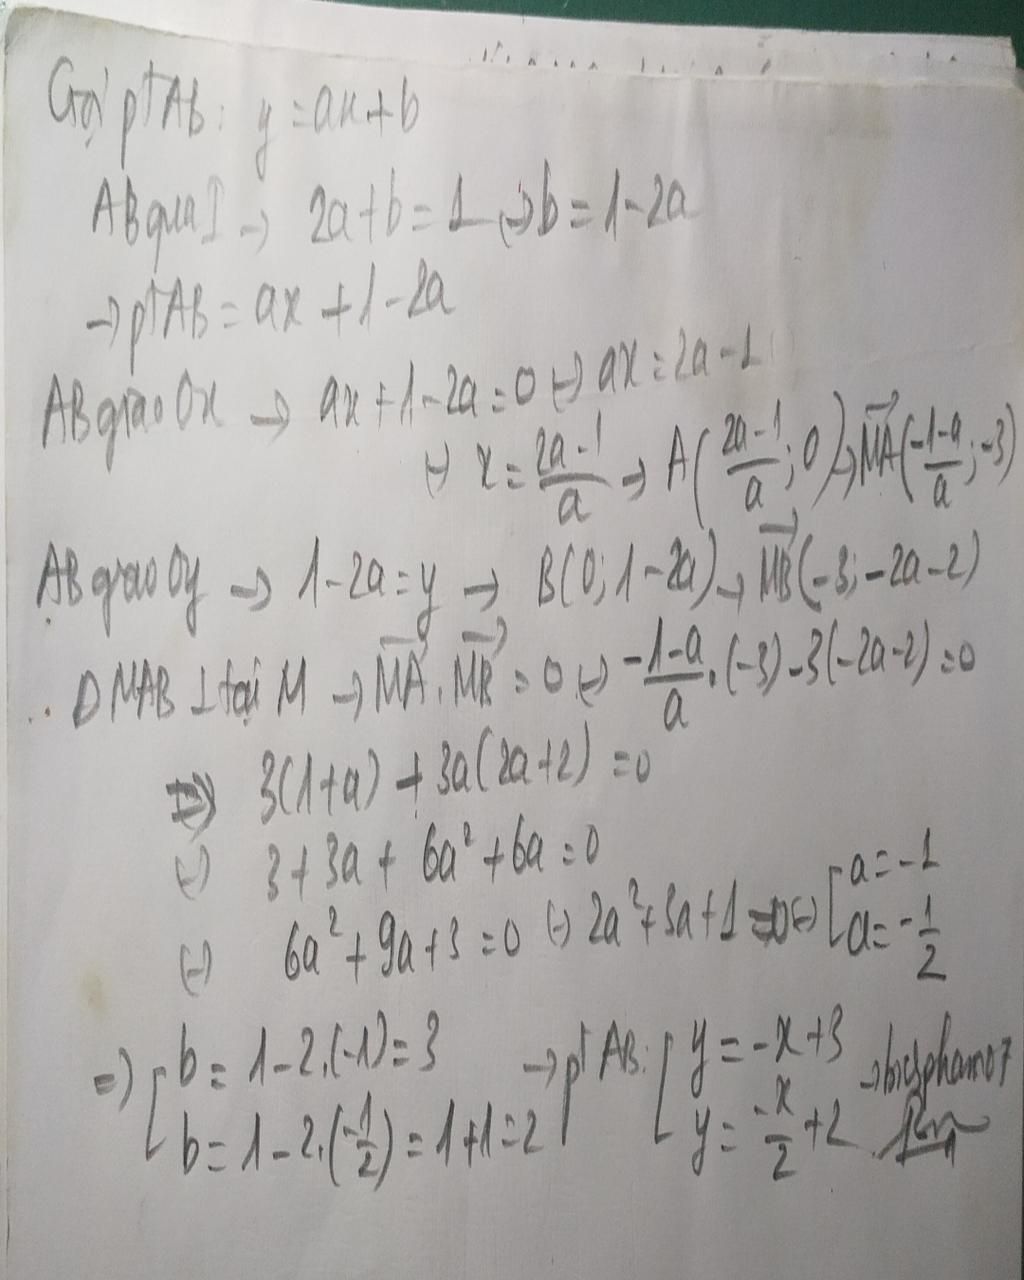 Gọi ptAB: y = ax + b
AB qua I → 2a + b = 1 ⇔ b = 1 - 2a
→ ptAB = ax + 1 - 2a
AB giao Ox → ax + 1 - 2a = 0 ⇔ ax = 2a - 1
⇔ x = \frac{2a-1}{a} → A(\frac{2a-1}{a}; 0) → \vec{MA}(\frac{-1-a}{a}; -3)
AB giao Oy → 1 - 2a = y → B(0; 1 - 2a) → \vec{MB}(-3; -2a - 2)
Δ MAB ⊥ tại M → \vec{MA} . \vec{MB} = 0 ⇔ \frac{-1-a}{a} . (-3) - 3(-2a - 2) = 0
⇔ 3(1 + a) + 3a(2a + 2) = 0
⇔ 3 + 3a + 6a² + 6a = 0
⇔ 6a² + 9a + 3 = 0 ⇔ 2a² + 3a + 1 = 0 ⇔ [ a = -1
a = -\frac{1}{2}
⇒ [ b = 1 - 2.(-1) = 3 → pt AB: [ y = -x + 3
b = 1 - 2.(-\frac{1}{2}) = 1 + 1 = 2 y = \frac{-x}{2} + 2